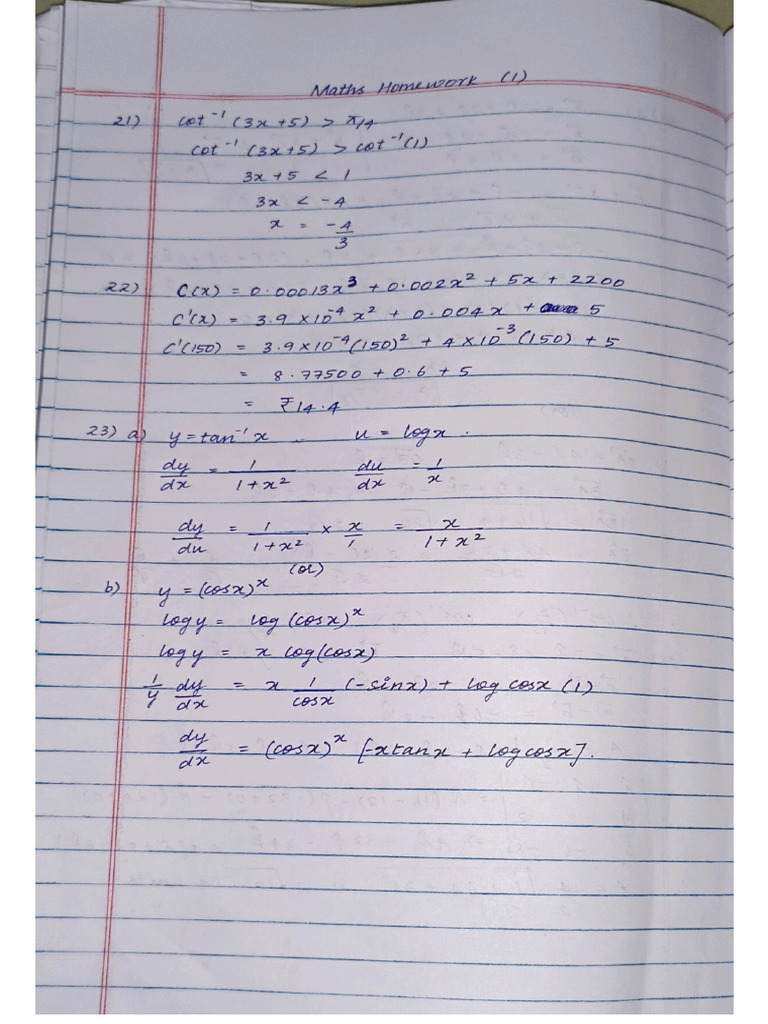 Maths Homework (1)
21) cot⁻¹ (3x+5) > π/4
cot⁻¹ (3x+5) > cot⁻¹(1)
3x+5 < 1
3x < -4
x = -4/3
22) C(x) = 0.00013x³ + 0.002x² + 5x + 2200
C'(x) = 3.9 × 10⁻⁴ x² + 0.004x + 5
C'(150) = 3.9 × 10⁻⁴ (150)² + 4 × 10⁻³ (150) + 5
= 8.77500 + 0.6 + 5
= ₹14.4
23) a) y = tan⁻¹ x u = log x.
dy/dx = 1/(1+x²) du/dx = 1/x
dy/du = 1/(1+x²) × x/1 = x/(1+x²)
(or)
b) y = (cosx)ˣ
log y = log (cosx)ˣ
log y = x log(cosx)
1/y dy/dx = x 1/cosx (-sinx) + log cosx (1)
dy/dx = (cosx)ˣ [-x tanx + log cosx].